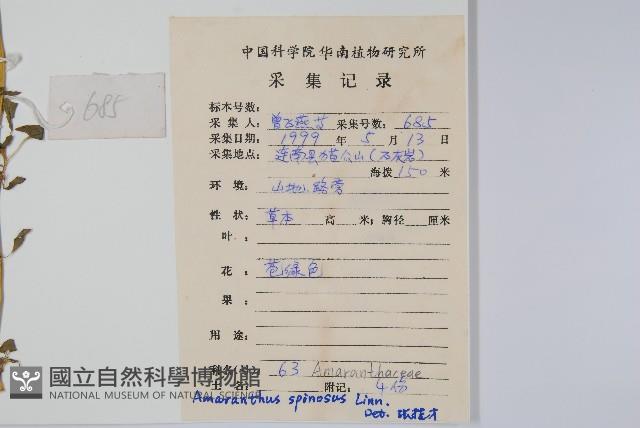 中国科学院华南植物研究所
采集记录
685
标本号数:
采集人: 曾飞燕 采集号数: 685
采集日期: 1999 年 5 月 13 日
采集地点: 连南县 公山(石灰岩)
海拨 150 米
环境: 山地路旁
性状: 草本 高 米; 胸径 厘米
叶:
花: 苞绿色
果:
用途:
63 Amaranthaceae
附记: 4份
Amaranthus spinosus Linn.
Det. 张桂才
國立自然科學博物館
NATIONAL MUSEUM OF NATURAL SCIENCE